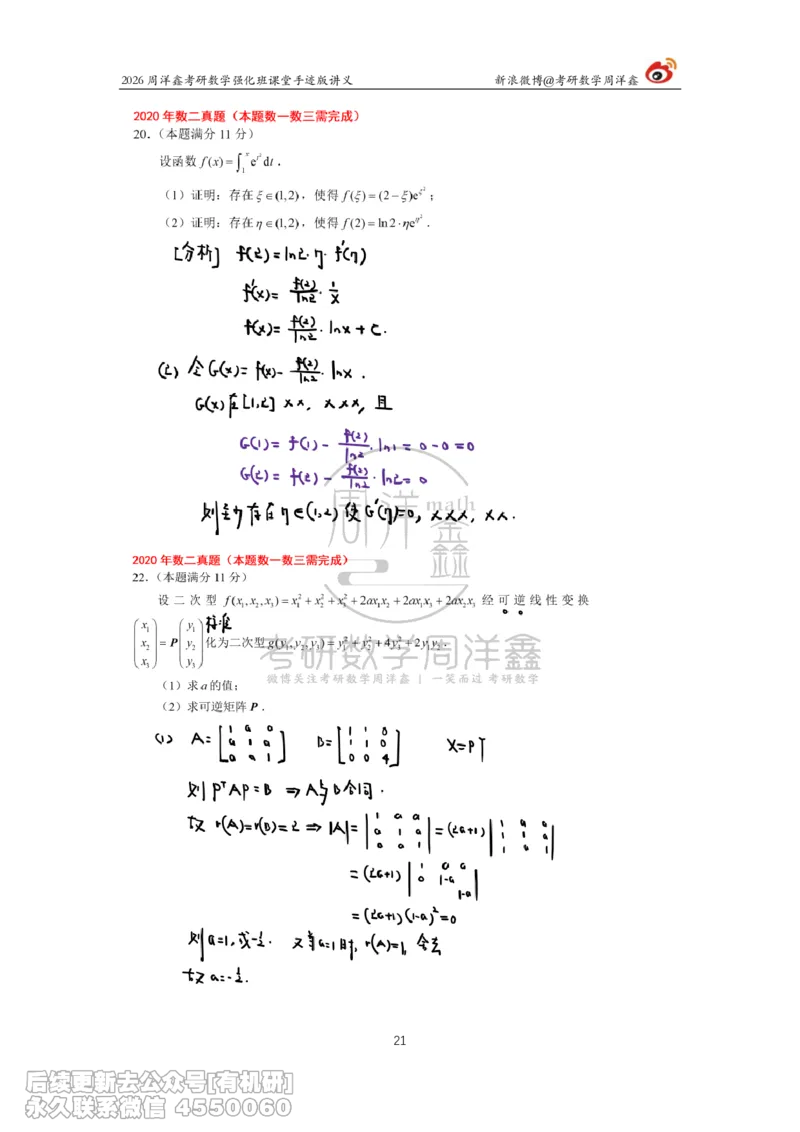 2026 周洋鑫考研数学强化班课堂手迹版讲义 新浪微博@考研数学周洋鑫
2020 年数二真题（本题数一数三需完成）
20．（本题满分 11 分）
设函数 f(x)=∫₁ˣ e^{t²}dt．
（1）证明：存在 ξ∈(1,2)，使得 f(ξ)=(2−ξ)e^{ξ²}；
（2）证明：存在 η∈(1,2)，使得 f(2)=ln2·ηe^{η²}．
[分析] f(2)=ln2·η·f′(η)
f′(x)= f(2)/ln2 · 1/x
f(x)= f(2)/ln2 · lnx + C.
(2) 令G(x)= f(x)- f(2)/ln2 · lnx .
G(x)在[1,2] xx, xxx, 且
G(1)= f(1) - f(2)/ln2 · ln1 = 0-0=0
G(2)= f(2) - f(2)/ln2 · ln2=0
则至少存在η∈(1,2) 使G′(η)=0, xxx, xx.
周洋鑫 math
2020 年数二真题（本题数一数三需完成）
22．（本题满分 11 分）
设二次型 f(x₁,x₂,x₃)=x₁²+x₂²+x₃²+2ax₁x₂+2ax₁x₃+2ax₂x₃ 经可逆线性变换
(x₁ x₂ x₃)ᵀ = P (y₁ y₂ y₃)ᵀ 化为二次型 g(y₁,y₂,y₃)=y₁²+y₂²+4y₃²+2y₁y₂．
考研数学周洋鑫
微博关注考研数学周洋鑫 | 一笑而过 考研数学
（1）求 a 的值；
（2）求可逆矩阵 P．
(1) A=[1 a a; a 1 a; a a 1] B=[1 1 0; 1 1 0; 0 0 4] X=PY
则 PᵀAP=B ⇒ A与B合同.
故 r(A)=r(B)=2 ⇒ |A|=|1 a a; a 1 a; a a 1|=(2a+1)|1 a a; 1 1 a; 1 a 1|
=(2a+1)|1 a a; 0 1-a; 1-a|
=(2a+1)(1-a)²=0
则 a=1, 或-½. 又当a=1时, r(A)=1, 舍去
故 a=-½.
21
后续更新去公众号[有机研]
永久联系微信 4550060